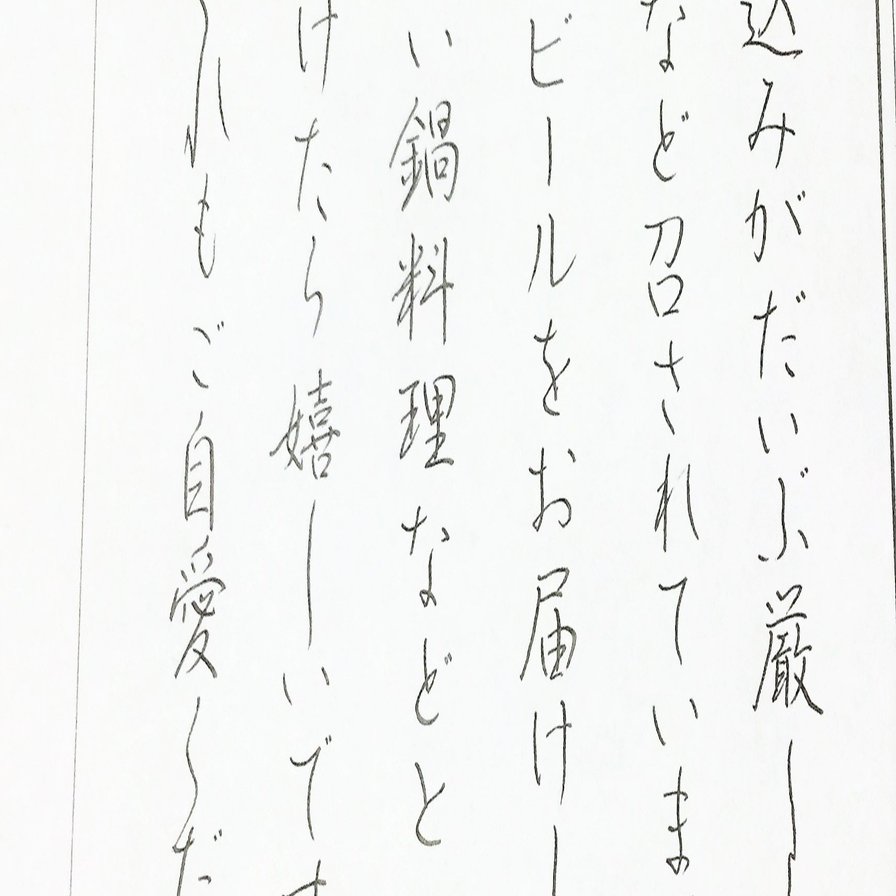 込みがだいぶ厳し
など召されていま
ビールをお届けし
い鍋料理などと
けたら嬉しいです
くれもご自愛くだ